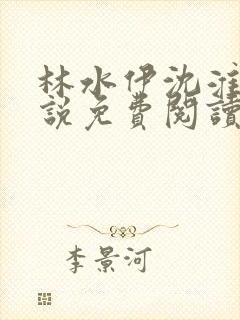 林水伊沈淮
說免費閱讀
李景河